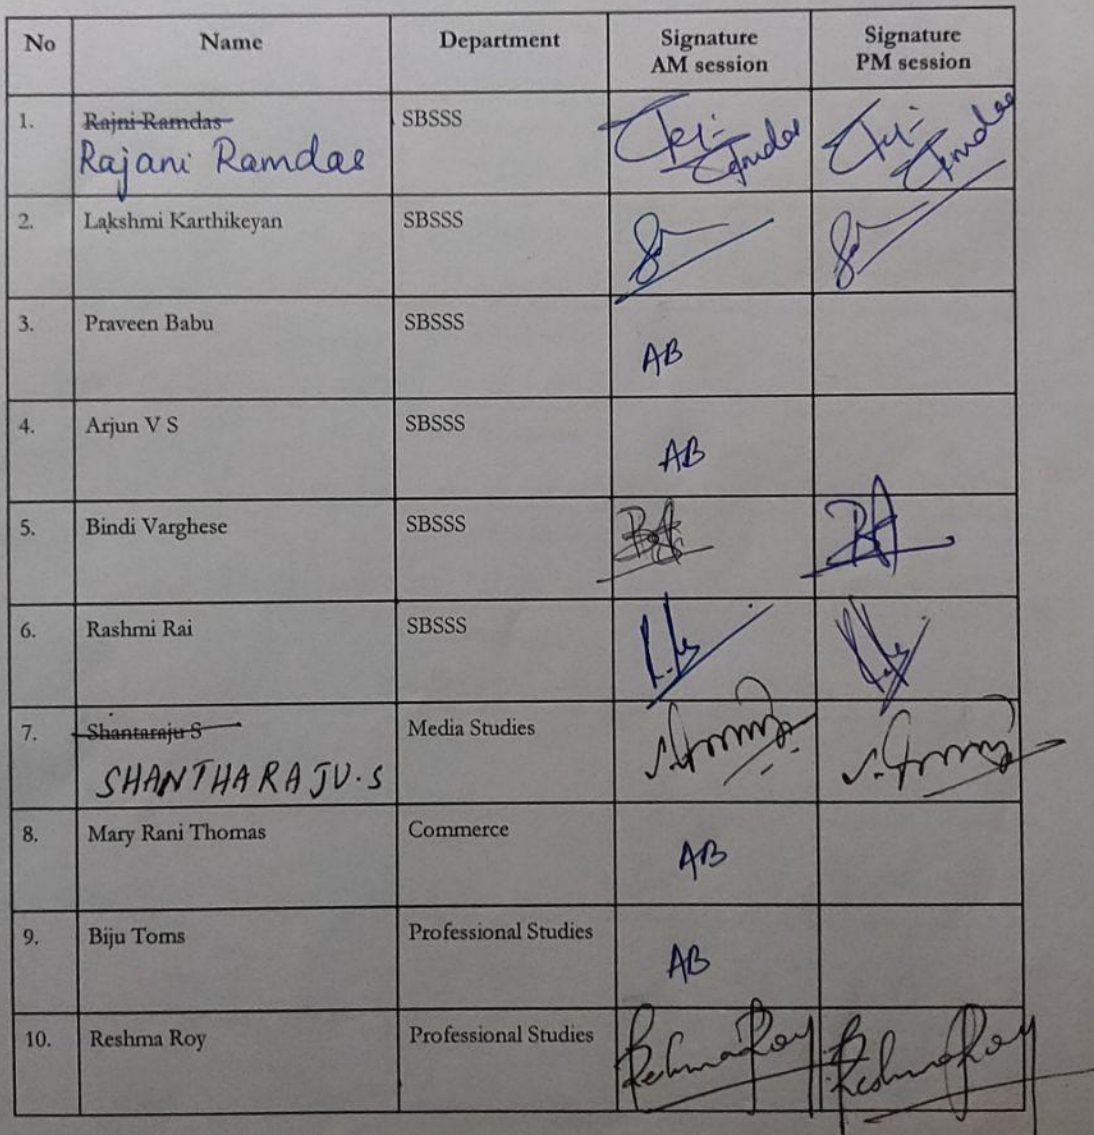 No Name Department Signature AM session Signature PM session
1. Rajni Ramdas SBSSS
Rajani Ramdas
2. Lakshmi Karthikeyan SBSSS
3. Praveen Babu SBSSS
AB
4. Arjun V S SBSSS
AB
5. Bindi Varghese SBSSS
6. Rashmi Rai SBSSS
7. Shantaraju S Media Studies
SHANTHARAJU.S
8. Mary Rani Thomas Commerce
AB
9. Biju Toms Professional Studies
AB
10. Reshma Roy Professional Studies
Reshma Roy Reshma Roy